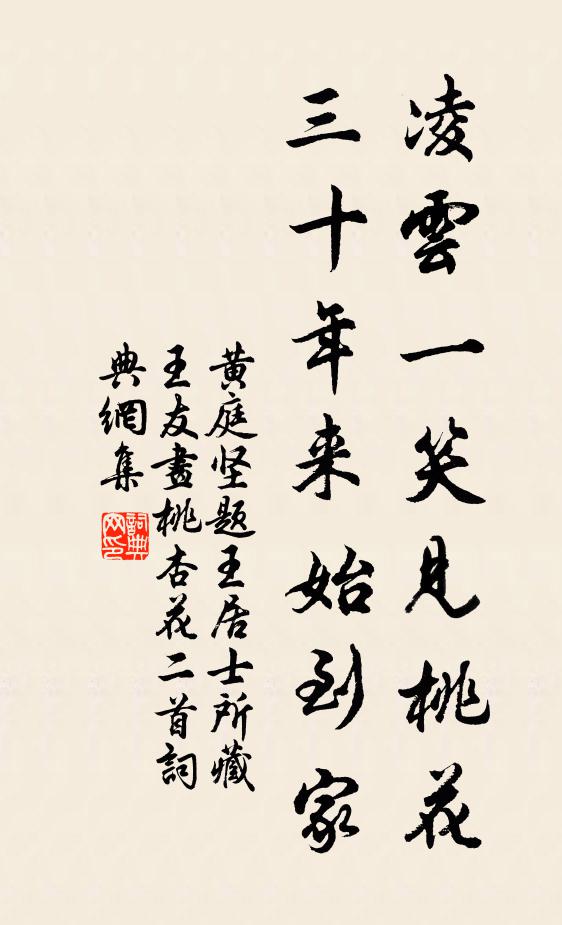 凌雲一笑見桃花
三十年来始到家
黄庭坚题王居士所藏
王友畫桃杏花二首詞
典網集
詞典
网印